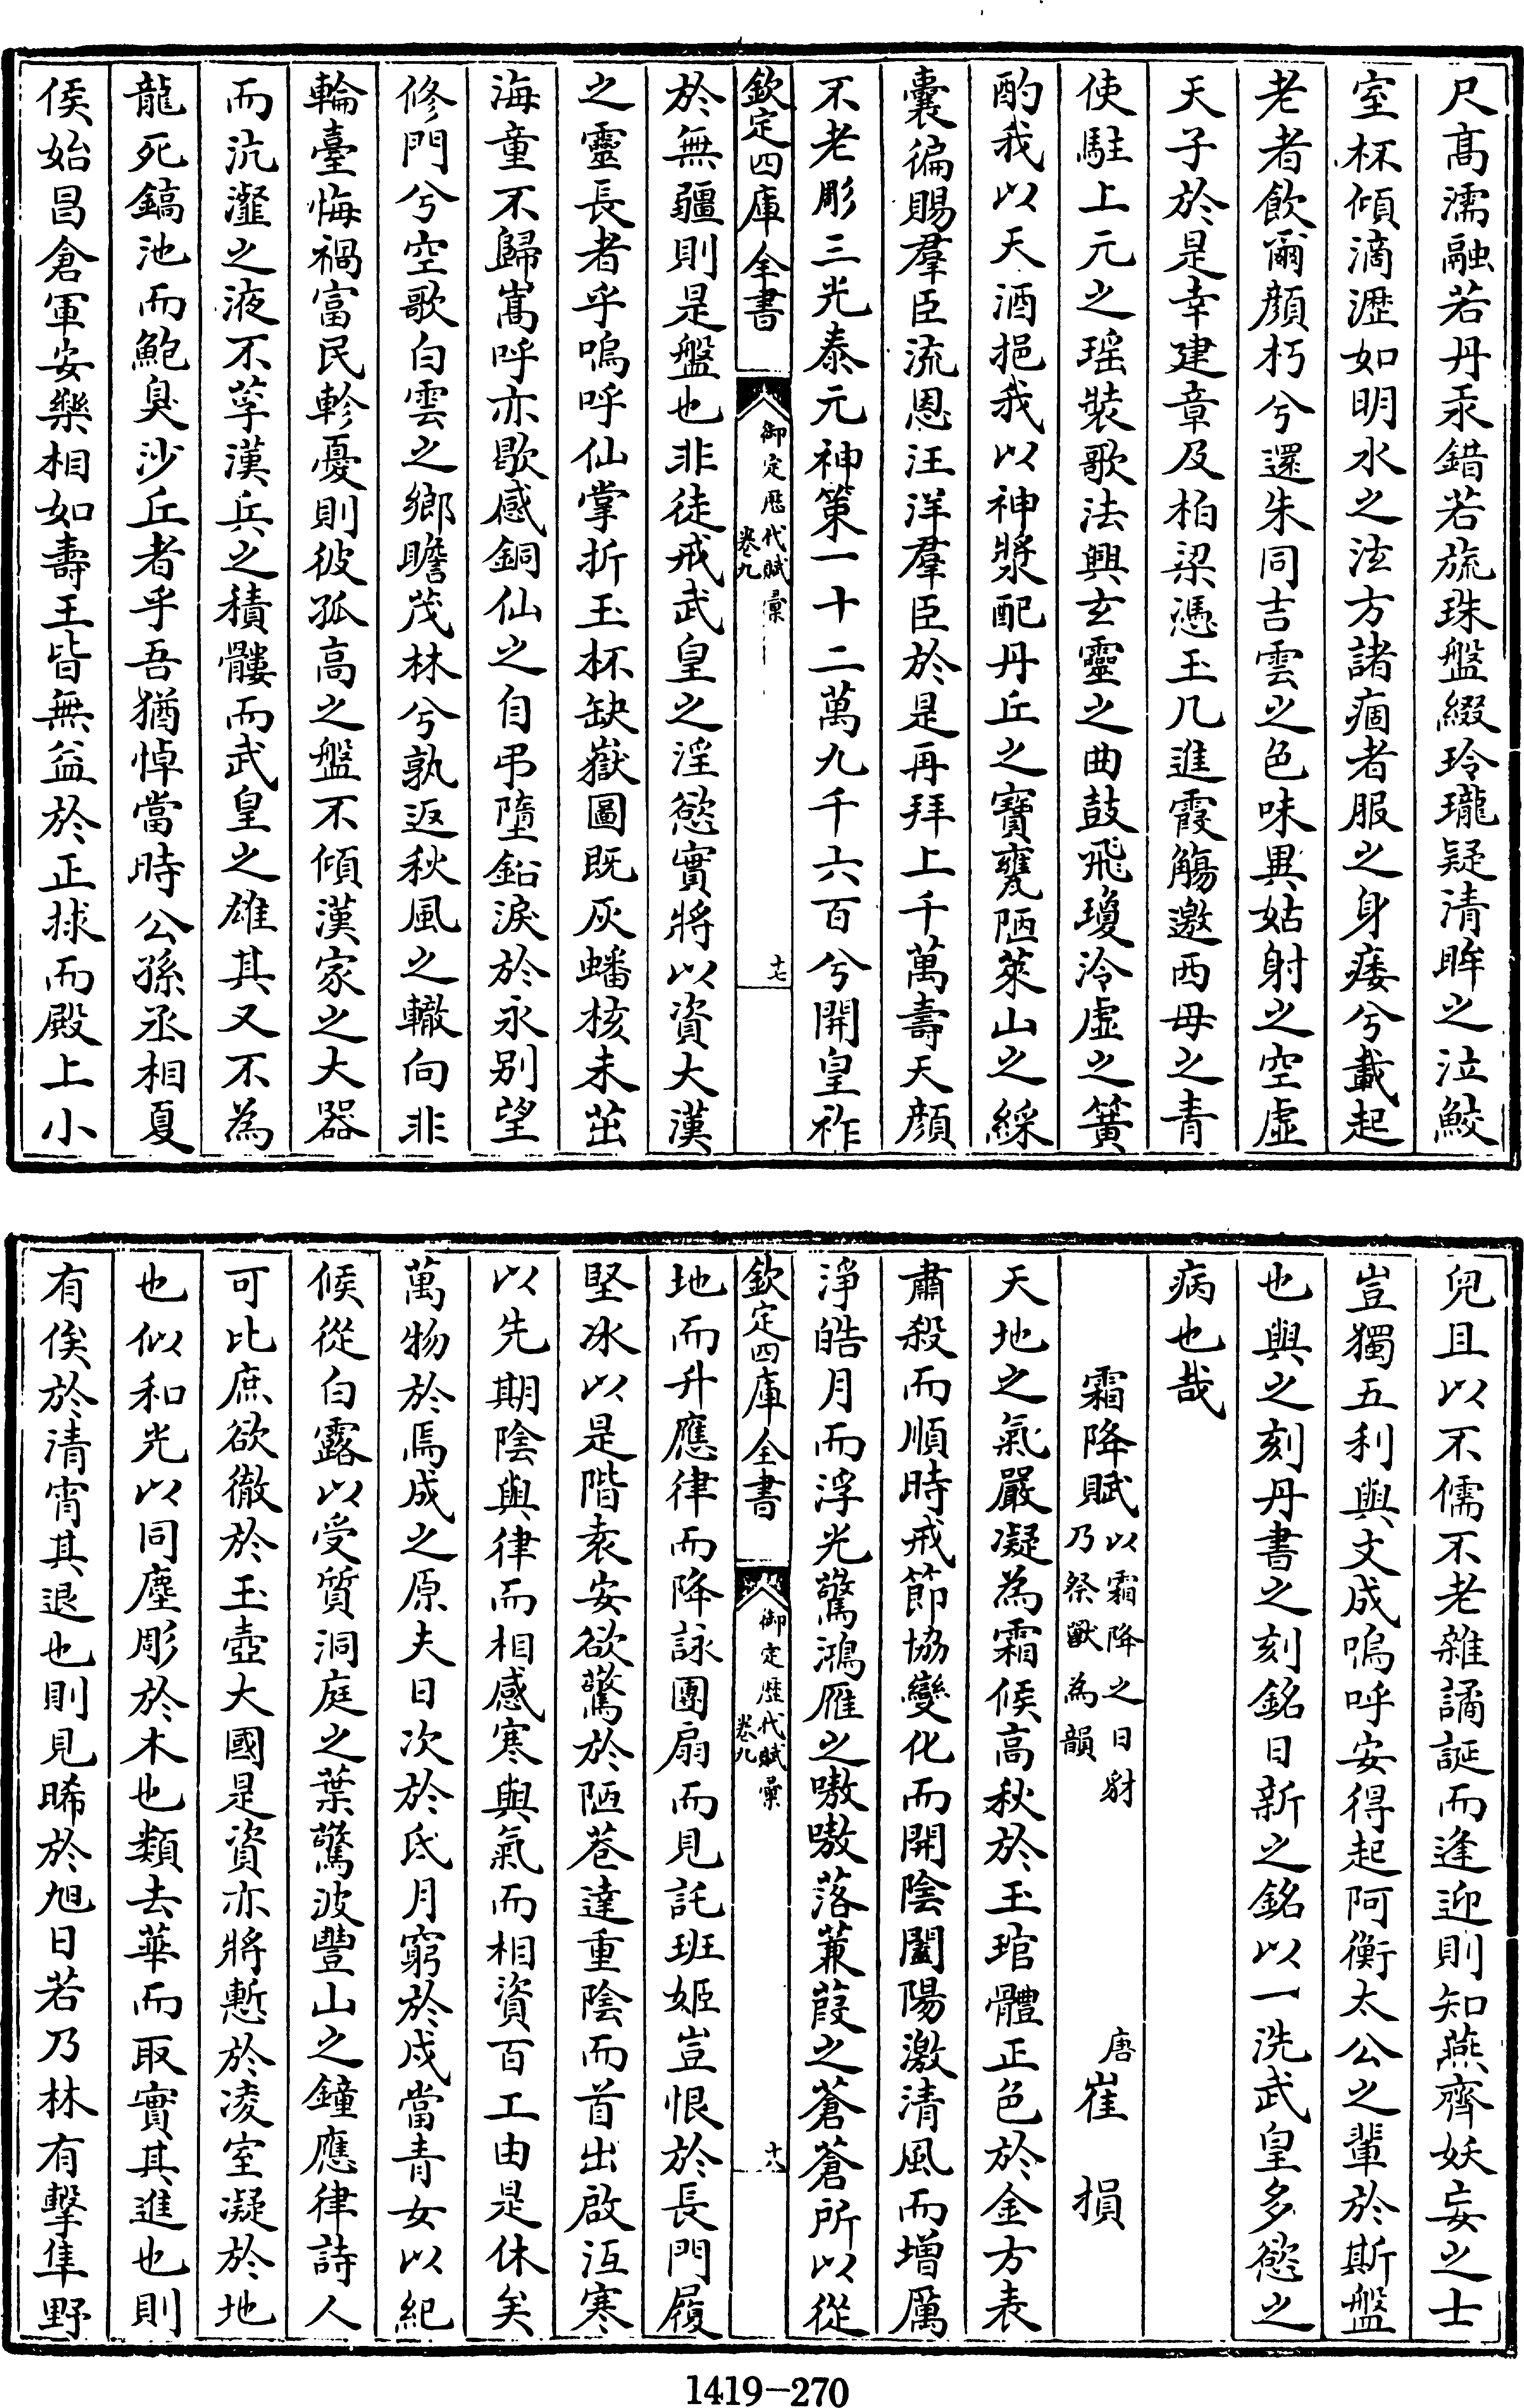 尺髙濡融若丹汞錯若旒珠盤綴玲瓏疑清眸之泣鮫
室杯傾滴瀝如明水之泫方諸痼者服之身痿兮載起
老者飲爾顔朽兮還朱同吉雲之色味異姑射之空虚
天子於是幸建章及柏梁憑玉几進霞觴邀西母之青
使駐上元之瑶裝歌法興玄靈之曲鼓飛瓊泠虚之簧
酌我以天酒挹我以神漿配丹丘之寳甕陋萊山之綵
囊徧賜羣臣流恩汪洋羣臣於是再拜上千萬壽天顔
不老彫三光泰元神策一十二萬九千六百兮開皇祚
欽定四庫全書
御定歴代賦彙
卷九
十七
於無疆則是盤也非徒戒武皇之淫慾實將以資大漢
之靈長者乎嗚呼仙掌折玉杯缺嶽圖既灰蟠核未茁
海童不歸嵩呼亦歇感銅仙之自弔墮鉛淚於永别望
修門兮空歌白雲之鄉瞻茂林兮孰返秋風之轍向非
輪臺悔禍富民軫憂則彼孤高之盤不傾漢家之大器
而沆瀣之液不莩漢兵之積髏而武皇之雄其又不為
龍死鎬池而鮑臭沙丘者乎吾猶悼當時公孫丞相夏
侯始昌倉軍安樂相如壽王皆無益於正捄而殿上小
兒且以不儒不老雜譎誕而逢迎則知燕齊妖妄之士
豈獨五利與文成嗚呼安得起阿衡太公之輩於斯盤
也與之刻丹書之刻銘日新之銘以一洗武皇多慾之
病也哉
霜降賦 以霜降之日豺乃祭獸為韻 唐 崔損
天地之氣嚴凝為霜候高秋於玉琯體正色於金方表
肅殺而順時戒節協變化而開陰闔陽激清風而增厲
淨皓月而浮光驚鴻雁之嗷嗷落蒹葭之蒼蒼所以從
欽定四庫全書
御定歴代賦彙
卷九
十八
地而升應律而降詠團扇而見託班姬豈恨於長門履
堅冰以是階袁安欲驚於陋巷達重陰而首出啟沍寒
以先期陰與律而相感寒與氣而相資百工由是休矣
萬物於焉成之原夫日次於氐月窮於戍當青女以紀
候從白露以受質洞庭之葉驚波豐山之鐘應律詩人
可比庶欲徹於玉壺大國是資亦將慙於凌室凝於地
也似和光以同塵彫於木也類去華而取實其進也則
有俟於清宵其退也則見晞於旭日若乃林有擊隼野
1419-270